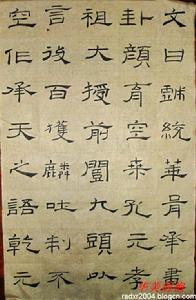 文曰戲統華胥承畫
卦顏育空桑孔元孝
祖大授前闓九頭以
言後百獲麟吐制不
空作承天之語乾元
radxr2004.blogcn.com